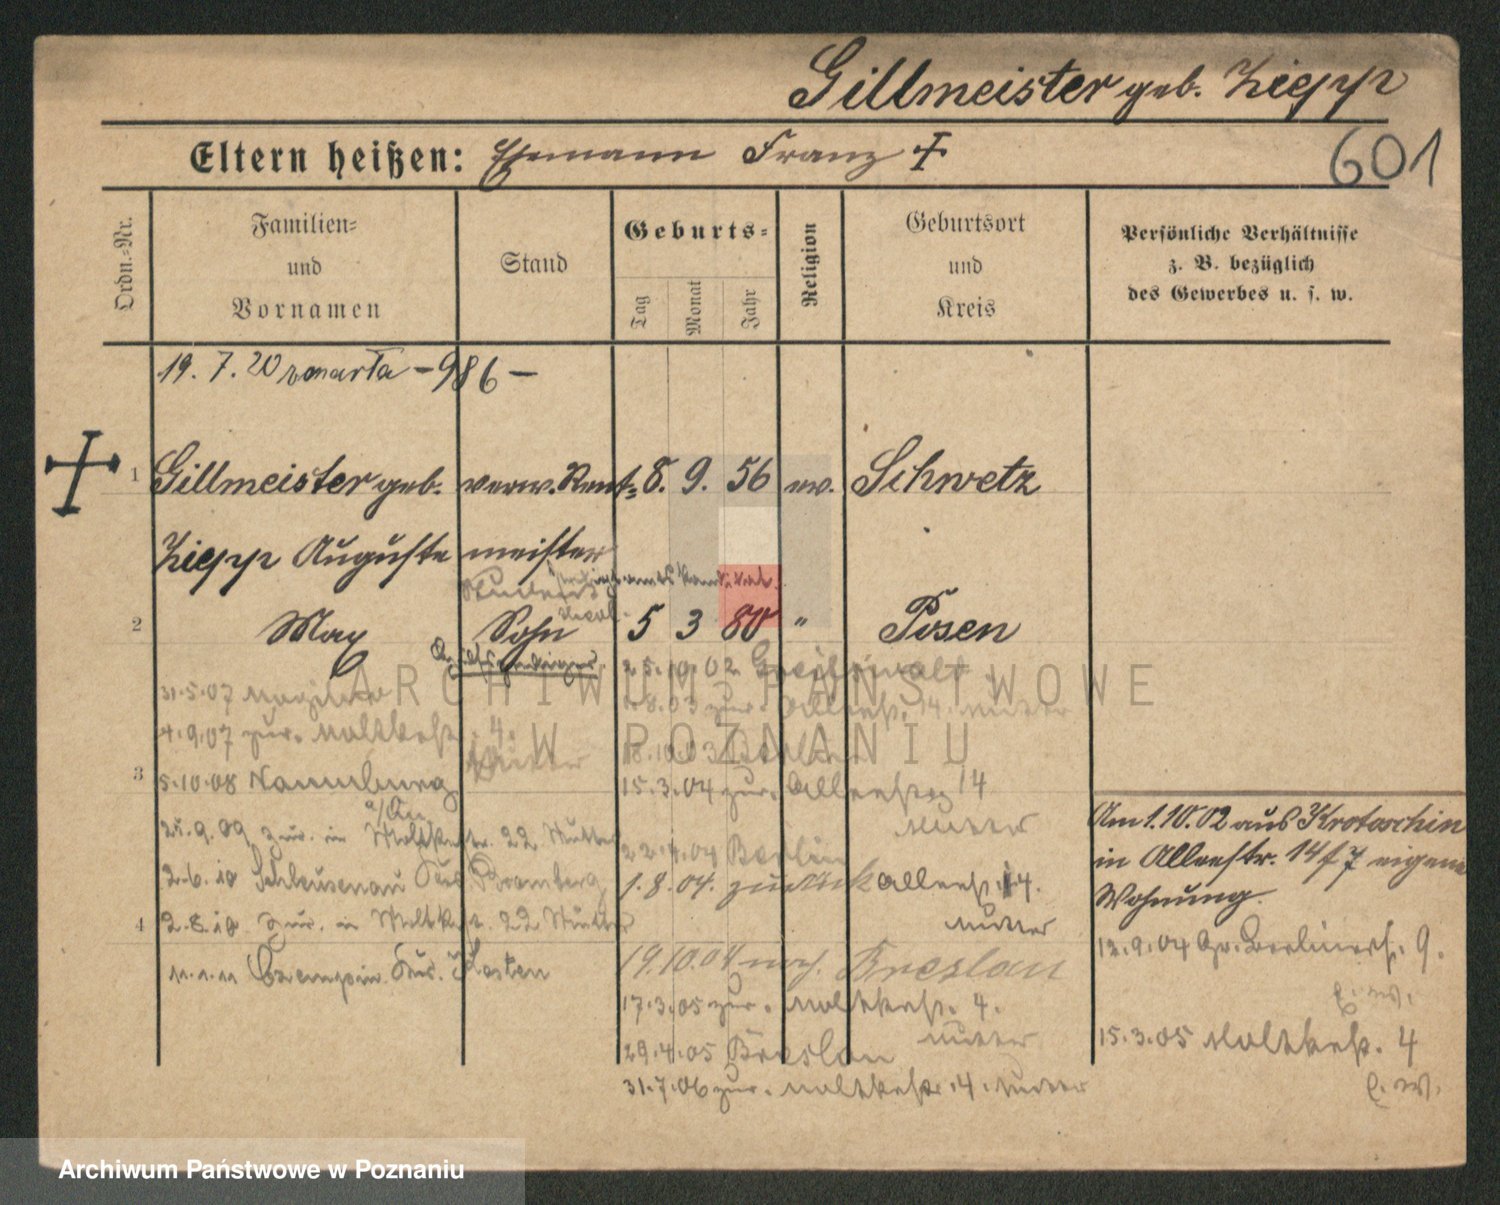 Gillmeister geb. Ziepp
Eltern heißen: Ehemann Franz †
601
Ordn.-Nr.
Familien-
und
Vornamen
Stand
Geburts-
Tag
Monat
Jahr
Religion
Geburtsort
und
Kreis
Persönliche Verhältnisse
z. B. bezüglich
des Gewerbes u. s. w.
19. 7. 20 Warta - 986 -
1 Gillmeister geb. verw. Rent- 8. 9. 56 ev. Schwetz
Ziepp Auguste meister
Student
2 Max Sohn 5 3 80 " Posen
25.10.02 Greifswald
31.5.07
1.8.03 zur. Alleestr. 14. Mutter
4.9.07 zur. Moltkestr. 4.
Mutter
18.10.03 Berlin
3
5.10.08 Naumburg
15.3.04 zur. Alleestr. 14
Mutter
25.9.09 zur. in Moltkestr. 22 Mutter
22.4.04 Berlin
2.6.10 Schleusenau Kreis Bromberg
1.8.04. zurück Alleestr. 14.
Mutter
4
2.8.10 zur. in Moltkestr. 22 Mutter
19.10.04 nach Breslau
11.1.11 Czempin Krs. Kosten
17.3.05 zur. Moltkestr. 4.
Mutter
29.4.05 Breslau
31.7.06 zur. Moltkestr. 4. Mutter
Am 1.10.02 aus Krotoschin
in Alleestr. 14 eigene
Wohnung.
12.9.04 Gr. Berlinerstr. 9.
E. W.
15.3.05 Moltkestr. 4
E. W.
ARCHIWUM PAŃSTWOWE
W POZNANIU
Archiwum Państwowe w Poznaniu